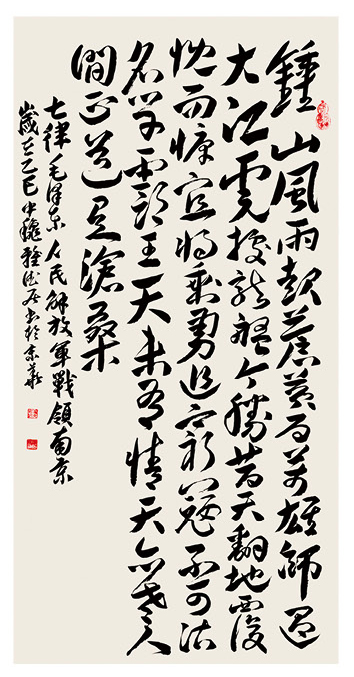 鍾山風雨起蒼黃百萬雄師過
大江虎踞龍盤今勝昔天翻地覆
慨而慷宜將剩勇追窮寇不可沽
名學霸王天若有情天亦老人
間正道是滄桑
七律毛澤東人民解放軍戰領南京
歲在乙巳中穐書於京華